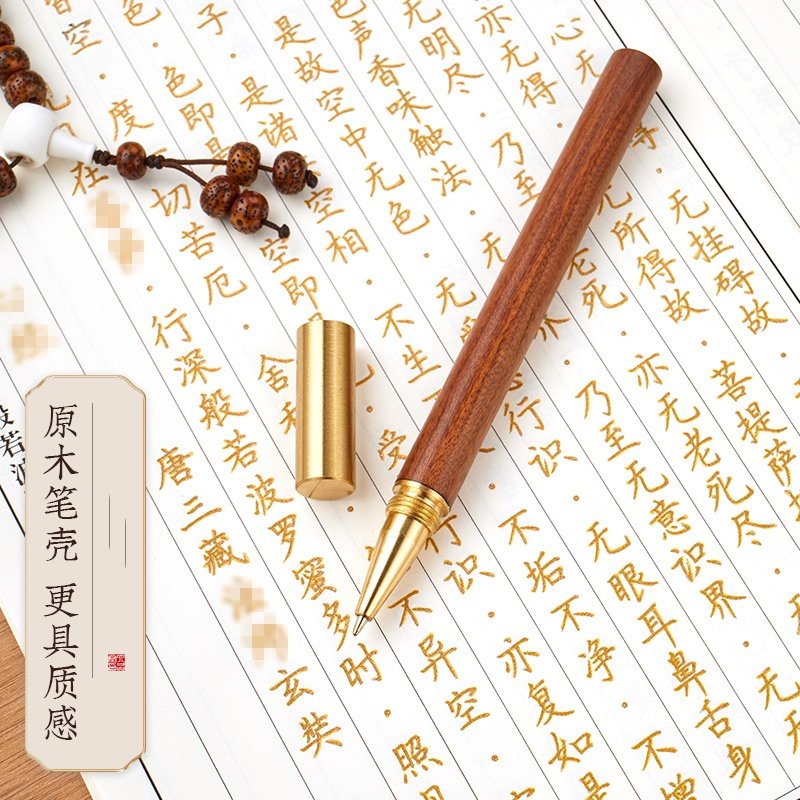 原木笔壳 更具质感
般若波
唐三藏
玄奘
在 · 行深般若波罗蜜多时 · 照
空 · 度 切苦厄 · 舍 不异空 ·
色即 空即 受 行识 · 亦复如是
是诸 空相 · 不生 不垢不净 · 不增
是故空中无色 · 无 行识 · 无眼耳鼻舌身
色声香味触法 · 无 乃至无意识界 · 无无
无明尽 · 乃至无老死 · 亦无老死尽
亦无得 无所得故 · 菩提萨
心无 无挂碍故